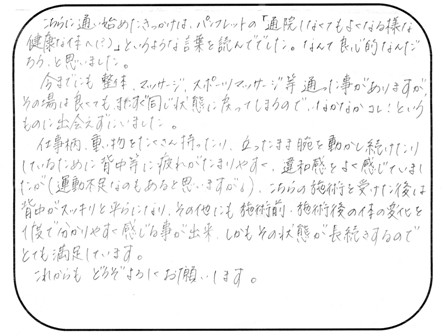 こちらに通い始めたきっかけは、パンフレットの「通院しなくてもよくなる様な
健康な体へ(?)」というような言葉を読んででした。なんて良心的なんだ
ろう、と思いました。
今までにも整体、マッサージ、スポーツマッサージ等通った事がありますが、
その場は良くてもまたすぐ同じ状態に戻ってしまうので、なかなかコレ!という
ものに出会えずにいました。
仕事柄、重い物をたくさん持ったり、立ったまま腕を動かし続けたり
しているために背中等に疲れがたまりやすく、違和感をよく感じていまし
たが(運動不足なのもあると思いますが)、こちらの施術を受けた後は
背中がスッキリと平らになり、その他にも施術前・施術後の体の変化を
1度で分かりやすく感じる事が出来、しかもその状態が長続きするので
とても満足しています。
これからもどうぞよろしくお願いします。